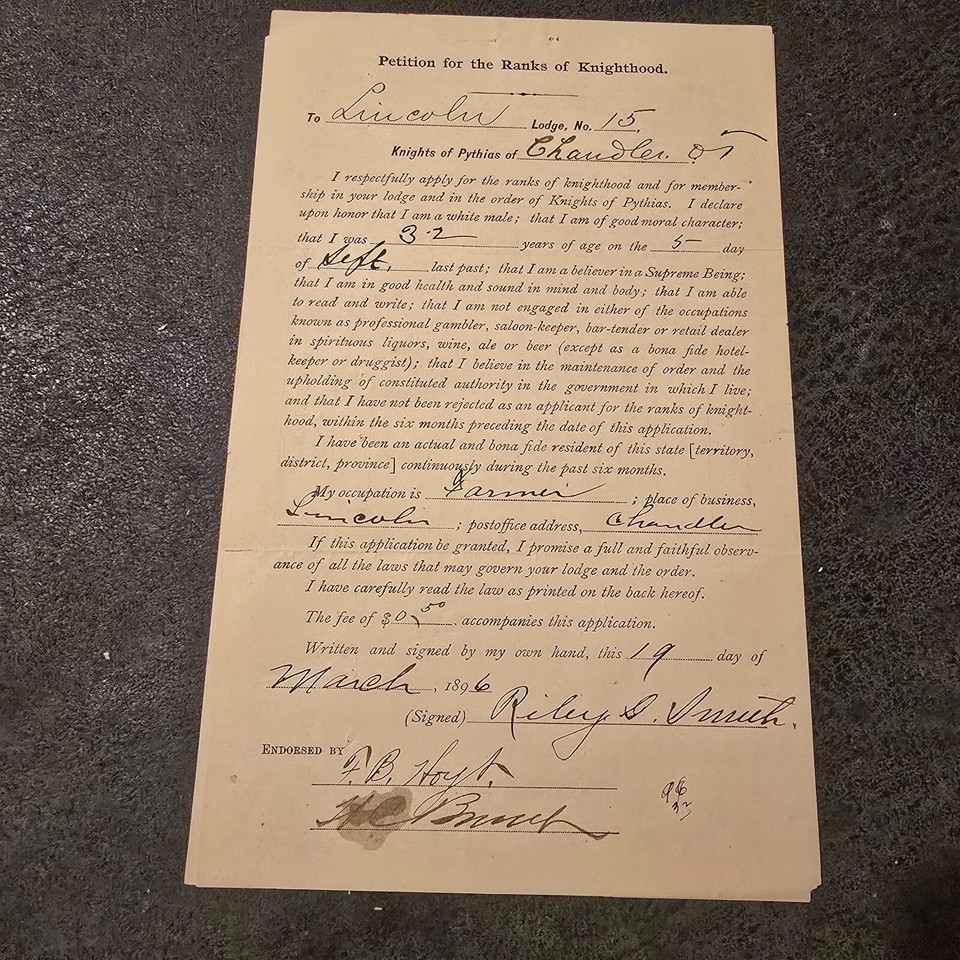 Petition for the Ranks of Knighthood.
To Lincoln Lodge, No. 15.
Knights of Pythias of Chandler. O T
I respectfully apply for the ranks of knighthood and for member-
ship in your lodge and in the order of Knights of Pythias. I declare
upon honor that I am a white male; that I am of good moral character;
that I was 32 years of age on the 5 day
of Sept. last past; that I am a believer in a Supreme Being;
that I am in good health and sound in mind and body; that I am able
to read and write; that I am not engaged in either of the occupations
known as professional gambler, saloon-keeper, bar-tender or retail dealer
in spirituous liquors, wine, ale or beer (except as a bona fide hotel-
keeper or druggist); that I believe in the maintenance of order and the
upholding of constituted authority in the government in which I live;
and that I have not been rejected as an applicant for the ranks of knight-
hood, within the six months preceding the date of this application.
I have been an actual and bona fide resident of this state [territory,
district, province] continuously during the past six months.
My occupation is Farmer ; place of business,
Lincoln ; postoffice address, Chandler
If this application be granted, I promise a full and faithful observ-
ance of all the laws that may govern your lodge and the order.
I have carefully read the law as printed on the back hereof.
The fee of $ 50 accompanies this application.
Written and signed by my own hand, this 19 day of
March, 1896
(Signed) Riley G. Smith.
ENDORSED BY
F. B. Hoyt.
H C
96
32